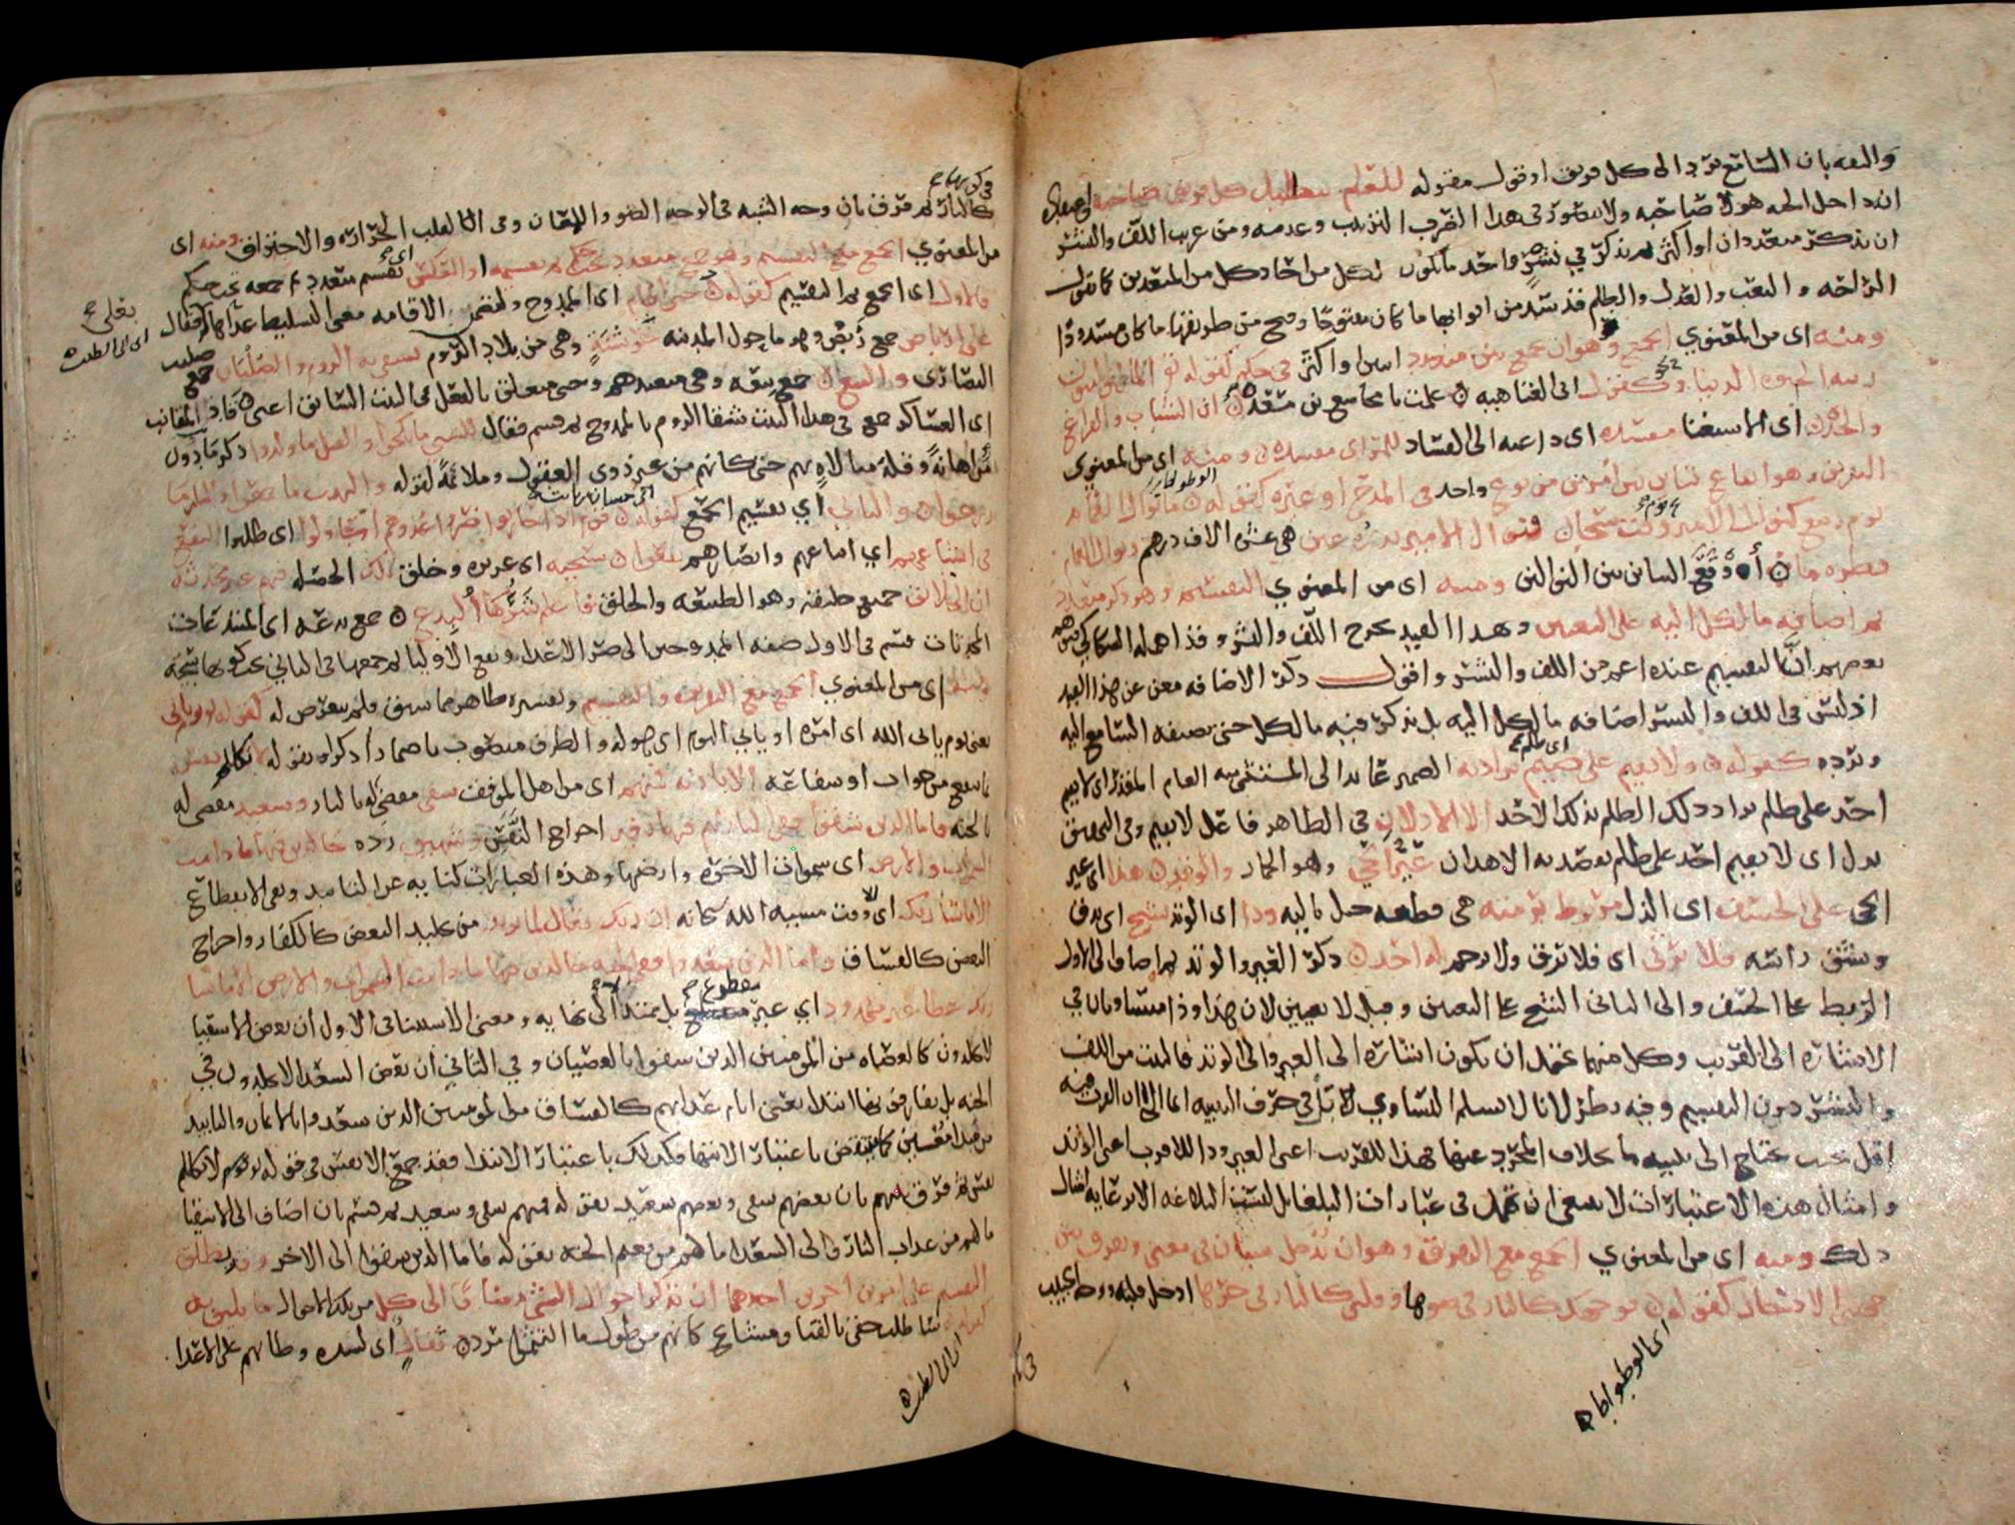 والثقه بان السامع يرد الى كل فريق او قول مقوله للعلم بتضليل كل فريق صاحبه واعتقاده
انه داخل الجنه هو لا صاحبه ولا يتصور في هذا الضرب الترتيب وعدمه ومن غريب اللف والنشر
ان يذكر متعددان او اكثر ثم يذكر في نشر واحد ما يكون لكل من احاد كل من المتعددين كما تقول
الراحه والتعب والعدل والظلم قد سد من ابوابها ما كان مفتوحا وفتح من طرقها ما كان مسدودا
ومنه اى من المعنوي الجمع وهو ان يجمع بين متعدد اثنين او اكثر في حكم كقوله تعالى المال والبنون
زينه الحيوه الدنيا وكقول ابى العتاهيه علمت يا مجاشع بن مسعده ان الشباب والفراغ
والجده اى الاستغنا مفسده اى داعيه الى الفساد للمرء اى مفسده ومنه اى من المعنوى
التفريق وهو ايقاع تباين بين امرين من نوع واحد في المدح او غيره كقوله ما نوال الغمام
يوم ربيع كنوال الامير يوم سخاء فنوال الامير بدره عين هى عشره الاف درهم ونوال الغمام
قطره ماء اوقع التباين بين النوالين ومنه اى من المعنوي التقسيم وهو ذكر متعدد
ثم اضافه ما لكل اليه على التعيين وبهذا القيد يخرج اللف والنشر وقد اهمله السكاكي فتوهم
بعضهم ان التقسيم عنده اعم من اللف والنشر واقول ذكر الاضافه مغن عن هذا القيد
اذ ليس في اللف والنشر اضافه ما لكل اليه بل يذكر فيه ما لكل حتى يضيفه السامع اليه
ويرده كقوله ولا يقيم على ضيم اى ظلم يراد به الضمير عائد الى المستثنى منه العام المقدر اى لا يقيم
احد على ظلم يراد ذلك الظلم بذلك الاحد الا الاذلان في الظاهر فاعل لا يقيم وفي التحقيق
بدل اى لا يقيم احد على ظلم يقصد به الا هذان عير الحي وهو الحمار والوتد هذا اى عير
الحى على الخسف اى الذل مربوط برمته هى قطعه حبل باليه وذا اى الوتد يشج اى يدق
ويشق راسه فلا يرثى اى فلا يرق ولا يرحم له احد ذكر العير والوتد ثم اضاف الى الاول
الربط مع الخسف والى الثاني الشج على التعيين وقيل لا تعيين لان هذا وذا متساويان في
الاشاره الى القريب وكل منهما يحتمل ان يكون اشاره الى العير والى الوتد فالبيت من اللف
والنشر دون التقسيم وفيه نظر لانا لا نسلم التساوي بل في حرف التنبيه ايما الى ان القرب فيه
اقل بحيث يحتاج الى تنبيه ما بخلاف المجرد عنها فهذا للقريب اعنى العير وذا للاقرب اعنى الوتد
وامثال هذه الاعتبارات لا ينبغى ان تهمل في عبارات البلغا بل ليست البلاغه الا رعايه امثال
ذلك ومنه اى من المعنوي الجمع مع التفريق وهو ان يدخل شيئان في معنى ويفرق بين
جهتي الادخال كقوله فوجهك كالنار في ضوئها وقلبى كالنار في حرها ادخل قلبه ووجه الحبيب
اى الوطواط
في كونهما
كالنار ثم فرق بان وجه الشبه في الوجه الضوء واللمعان وفى القلب الحراره والاحتراق ومنه اى
من المعنوي الجمع مع التقسيم وهو جمع متعدد تحت حكم ثم تقسيمه او العكس اى تقسيم متعدد ثم جمعه تحت حكم
فالاول اى الجمع ثم التقسيم كقوله حتى اقام اى الممدوح ولتضمين الاقامه معنى التسليط عداها بعلى فقال
على ارباض جمع ربض وهو ما حول المدينه خرشنة وهى من بلاد الروم تشقى به الروم والصلبان جمع صليب
النصارى والبيع جمع بيعه وهى متعبدهم وحتى متعلق بالفعل في البيت السابق اعنى قاد المقانب
اى العساكر جمع في هذا البيت شقا الروم بالممدوح ثم قسم فقال للسبي ما نكحوا والقتل ما ولدوا ذكر ما دون
من اهانة وقلة مبالاه بهم حتى كانهم من غير ذوى العقول وملائمة لقوله والنهب ما جمعوا والنار ما
زرعوا والثاني اي تقسيم ثم الجمع كقوله قوم اذا حاربوا ضروا عدوهم او حاولوا اى طلبوا النفع
في اشياعهم اي اتباعهم وانصارهم نفعوا سجيه اى غريزه وخلق تلك الخصله منهم غير محدثه
ان الخلائق جميع خليقه وهو الطبيعه والخلق فاعلم شرها البدع جمع بدعه اى المبتدعات
المحدثات قسم في الاول صفه الممدوحين الى ضر الاعداء ونفع الاوليا ثم جمعها في الثاني تحت كونها سجيه
ومنه اى من المعنوي الجمع مع التفريق والتقسيم وتفسيره ظاهر مما سبق فلم يتعرض له كقوله تعالى يوم ياتي
يعنى يوم ياتى الله اى امره او ياتي اليوم اى هوله والظرف منصوب باضمار اذكر او بقوله لا تكلم نفس
بما ينفع من جواب او شفاعه الا باذنه فمنهم اى من اهل الموقف شقى مقضى له بالنار وسعيد مقضى له
بالجنه فاما الذين شقوا ففى النار لهم فيها زفير اخراج النفس وشهيق رده خالدين فيها ما دامت
السموات والارض اى سموات الاخره وارضها وهذه العبارات كنايه عن التابيد ونفى الانقطاع
الا ما شا ربك اى الا وقت مشيه الله سبحانه ان ربك فعال لما يريد من تخليد البعض كالكفار واخراج
البعض كالفساق واما الذين سعدوا ففى الجنه خالدين فيها ما دامت السموات والارض الا ما شا
ربك عطا غير مجذوذ اي غير مقطوع بل ممتد لا الى نهايه ومعنى الاستثنا في الاول ان بعض الاشقيا
لا يخلدون كالعصاه من المومنين الذين شقوا بالعصيان وفي الثاني ان بعض السعدا لا يخلدون في
الجنه بل يفارقونها ابتدا يعنى ايام عذابهم كالفساق من المومنين الذين سعدوا بالايمان والتابيد
من مبدا معين كما ينتقض باعتبار الانتها فكذلك باعتبار الابتدا فقد جمع الانفس في قوله يوم لا تكلم
نفس ثم فرق بينهم بان بعضهم شقى وبعضهم سعيد بقوله فمنهم شقى وسعيد ثم قسم بان اضاف الى الاشقيا
ما لهم من عذاب النار والى السعدا ما لهم من نعيم الجنه بقوله فاما الذين شقوا الى الاخر وقد يطلق
التقسيم على امرين اخرين احدهما ان تذكر احوال الشي مضافا الى كل من تلك الاحوال ما يليق به
كقوله ساطلب حقى بالقنا ومشايخ كانهم من طول ما التثموا مرد ثقال اى لشده وطاتهم على الاعدا